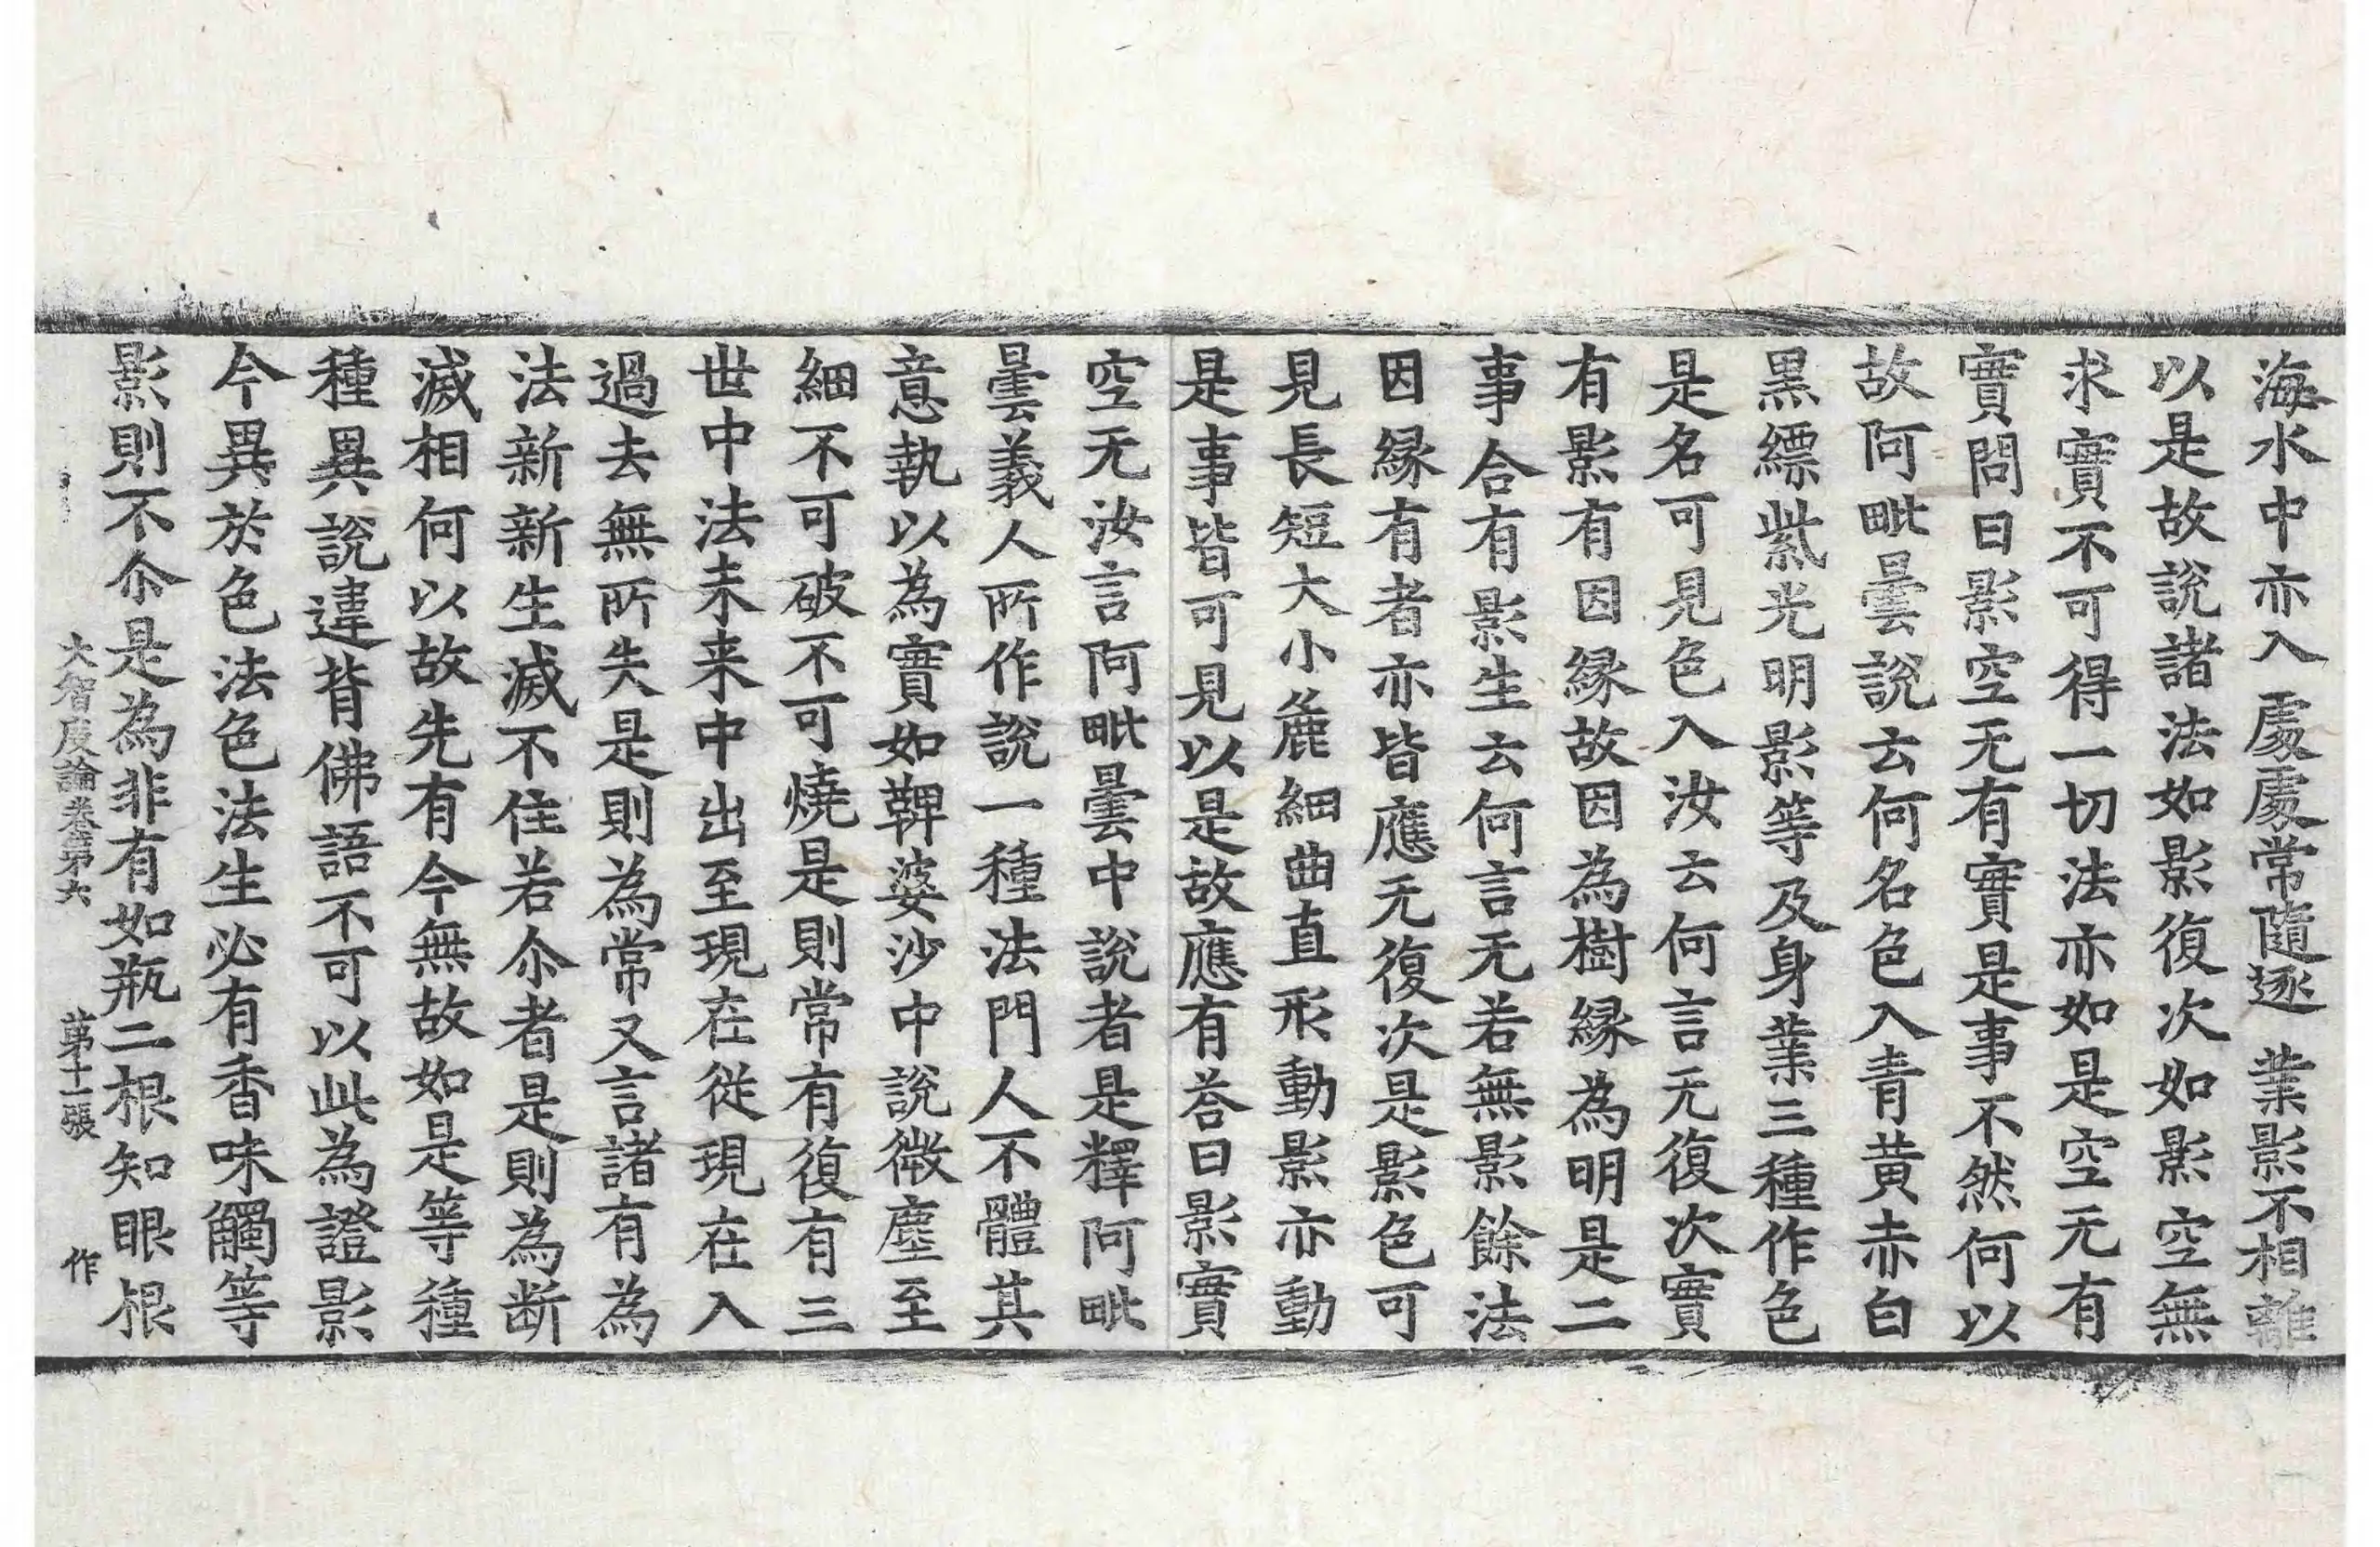 海水中亦入處處常隨逐 業影不相離
以是故說諸法如影復次如影空無
求實不可得一切法亦如是空无有
實問曰影空无有實是事不然何以
故阿毗曇說云何名色入青黄赤白
黒縹紫光明影等及身業三種作色
是名可見色入汝云何言无復次實
有影有因縁故因為樹縁為明是二
事合有影生云何言无若無影餘法
因縁有者亦皆應无復次是影色可
見長短大小麁細曲直形動影亦動
是事皆可見以是故應有荅曰影實
空无汝言阿毗曇中說者是釋阿毗
曇義人所作說一種法門人不體其
意執以為實如鞞婆沙中說微塵至
細不可破不可燒是則常有復有三
世中法未来中出至現在從現在入
過去無所失是則為常又言諸有為
法新新生滅不住若尒者是則為断
滅相何以故先有今無故如是等種
種異說違背佛語不可以此為證影
今異於色法色法生必有香味觸等
影則不尒是為非有如瓶二根知眼根
大智度論卷第六 第十一張 作